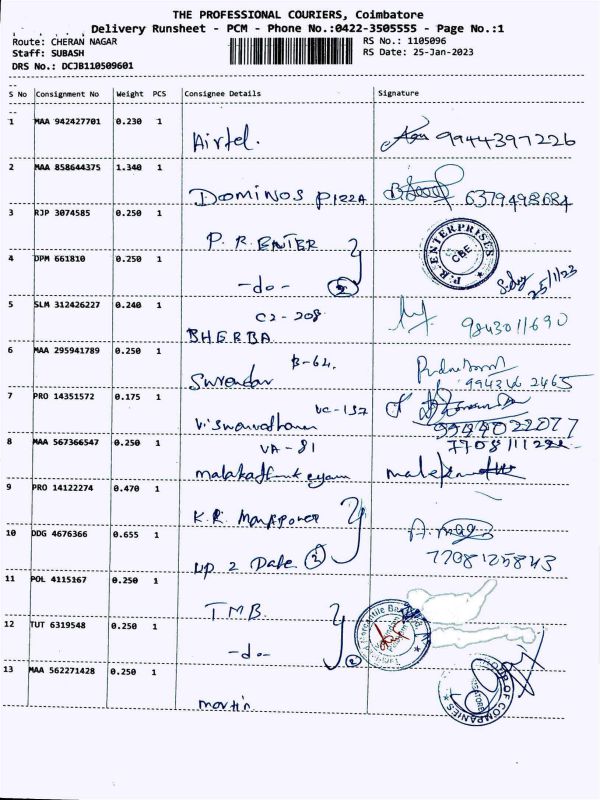 THE PROFESSIONAL COURIERS, Coimbatore
Delivery Runsheet - PCM - Phone No.:0422-3505555 - Page No.:1
Route: CHERAN NAGAR
RS No.: 1105096
Staff: SUBASH
RS Date: 25-Jan-2023
DRS No.: DCJB110509601
S No Consignment No Weight PCS Consignee Details Signature
1 MAA 942427701 0.230 1
Airtel. 9944397226
2 MAA 858644375 1.340 1
DOMINOS PIZZA 6379498684
3 RJP 3074585 0.250 1
P.R. ENTER
P.R. ENTERPRISES CBE
4 DPM 661810 0.250 1
-do- 2 25/1/23
5 SLM 312426227 0.240 1
C2-208
BHERBA 9843011690
6 MAA 295941789 0.250 1
B-64.
Surendar 2465
7 PRO 14351572 0.175 1
VC-137
Viswanathan 9944022077
8 MAA 567366547 0.250 1
VA-81
9 PRO 14122274 0.470 1
K.R. Manpower
10 DDG 4676366 0.655 1
UP 2 Date 2 7708125843
11 POL 4115167 0.250 1
TMB
12 TUT 6319548 0.250 1
-do- 2
13 MAA 562271428 0.250 1
martin
OF COMPANIES